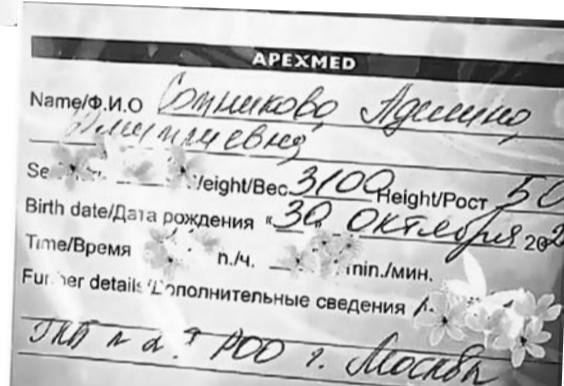 APEXMED
Name/Ф.И.О Сотникова Аделина
Дмитриевна
Weight/Вес 3100 Height/Рост 50
Birth date/Дата рождения « 30 Октября 202
Time/Время h./ч. min./мин.
Further details/Дополнительные сведения
РОО г. Москвы